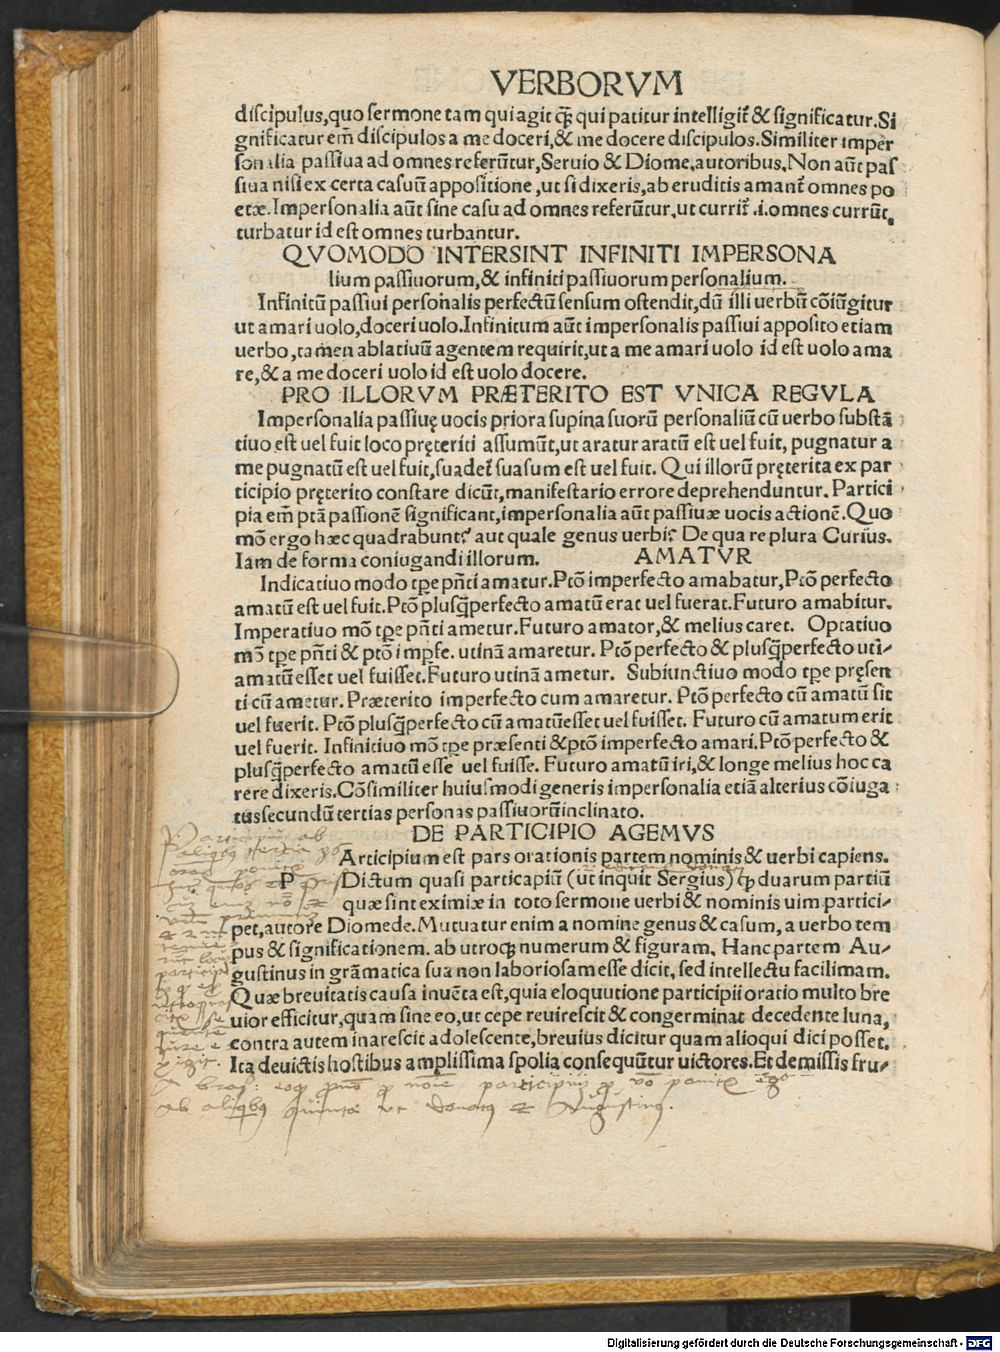 VERBORVM
discipulus,quo sermone tam qui agit q̃ꝫ qui patitur intelligit̃ & significatur.Si
gnificatur em̃ discipulos a me doceri,& me docere discipulos.Similiter imper
sonalia passiua ad omnes referũtur,Seruio & Diome.autoribus.Non aũt pas
siua nisi ex certa casuũ appositione,ut si dixeris,ab eruditis amant̃ omnes po
etæ.Impersonalia aũt sine casu ad omnes referũtur,ut currit̃ .i.omnes currũt,
turbatur id est omnes turbantur.
QVOMODO INTERSINT INFINITI IMPERSONA
lium passiuorum,& infiniti passiuorum personalium.
Infinitũ passiui personalis perfectũ sensum ostendit,dũ illi uerbũ cõiũgitur
ut amari uolo,doceri uolo.Infinitum aũt impersonalis passiui apposito etiam
uerbo,tamen ablatiuũ agentem requirit,ut a me amari uolo id est uolo ama
re,& a me doceri uolo id est uolo docere.
PRO ILLORVM PRÆTERITO EST VNICA REGVLA
Impersonalia passiuę uocis priora supina suorũ personaliũ cũ uerbo substã
tiuo est uel fuit loco pręteriti assumũt,ut aratur aratũ est uel fuit, pugnatur a
me pugnatũ est uel fuit,suadet̃ suasum est uel fuit. Qui illorũ pręterita ex par
ticipio pręterito constare dicũt,manifestario errore deprehenduntur. Partici
pia em̃ ptã passionẽ significant,impersonalia aũt passiuæ uocis actionẽ.Quo
mõ ergo hæc quadrabunt? aut quale genus uerbi? De qua re plura Curius.
Iam de forma coniugandi illorum. AMATVR
Indicatiuo modo tꝑe pñti amatur.Ptõ imperfecto amabatur,Ptõ perfecto
amatũ est uel fuit.Ptõ plusq̃perfecto amatũ erat uel fuerat.Futuro amabitur.
Imperatiuo mõ tꝑe pñti ametur.Futuro amator,& melius caret. Optatiuo
mõ tꝑe pñti & ptõ impfe. utinã amaretur. Ptõ perfecto & plusq̃perfecto uti-
amatũ esset uel fuisset.Futuro utinã ametur. Subiunctiuo modo tꝑe pręsen
ti cũ ametur. Præterito imperfecto cum amaretur. Ptõ perfecto cũ amatũ sit
uel fuerit. Ptõ plusq̃perfecto cũ amatũ esset uel fuisset. Futuro cũ amatum erit
uel fuerit. Infinitiuo mõ tꝑe præsenti & ptõ imperfecto amari.Ptõ perfecto &
plusq̃perfecto amatũ esse uel fuisse. Futuro amatũ iri,& longe melius hoc ca
rere dixeris.Cõsimiliter huiusmodi generis impersonalia etiã alterius cõiuga
tus secundũ tertias personas passiuorũ inclinato.
DE PARTICIPIO AGEMVS
P Articipium est pars orationis partem nominis & uerbi capiens.
Dictum quasi particapiũ (ut inquit Sergius) ꝙ duarum partiũ
quæ sint eximiæ in toto sermone uerbi & nominis uim partici-
pet,autore Diomede.Mutuatur enim a nomine genus & casum, a uerbo tem
pus & significationem. ab utroqꝫ numerum & figuram. Hanc partem Au-
gustinus in grãmatica sua non laboriosam esse dicit, sed intellectu facilimam.
Quæ breuitatis causa inuẽta est,quia eloquutione participii oratio multo bre
uior efficitur,quam sine eo,ut cepe reuirescit & congerminat decedente luna,
contra autem inarescit adolescente,breuius dicitur quam alioqui dici posset.
Ita deuictis hostibus amplissima spolia consequũtur uictores.Et demissis fru-
ab aliqbus quinta ut donatus et Augustinus.
Digitalisierung gefördert durch die Deutsche Forschungsgemeinschaft - DFG